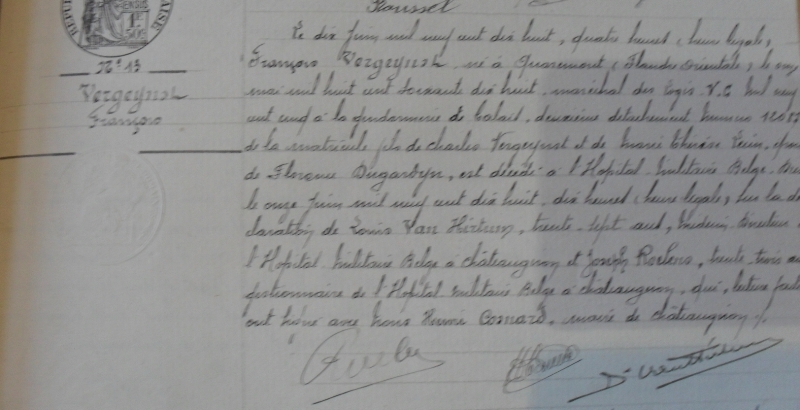 Roussel
N° 13
Vergeynst
François
Le dix juin mil neuf cent dix huit, quatre heures (heure légale,
François Vergeynst né à Quaremont (Flandre Orientale) le
mai mil huit cent soixante dix huit, maréchal des logis V.C mil neuf
cent cinq à la gendarmerie de Calais, deuxième détachement numéro
de la matricule fils de Charles Vergeynst et de Marie Thérèse époux
de Florence Dugardyn, est décédé à l'Hopital Militaire Belge
le onze juin mil neuf cent dix huit, dix heures (heure légale, sur la dé
claration de Louis Van Hirtum, trente sept ans, médecin directeur
l'Hopital Militaire Belge à Châteaugiron et Joseph Roelens, trente trois ans
gestionnaire de l'Hopital Militaire Belge à Châteaugiron, qui, lecture faite
ont signé avec nous Cosnard, maire de Châteaugiron.